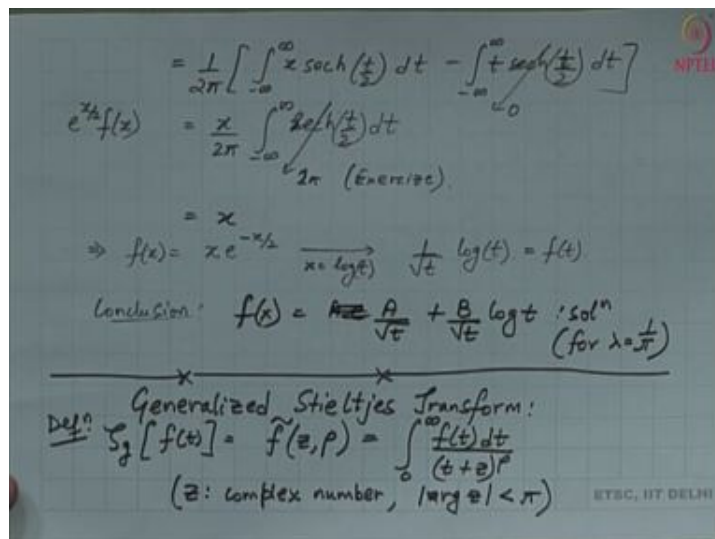 = 1/2π [ ∫_{-∞}^{∞} x sech(t/2) dt - ∫_{-∞}^{∞} t sech(t/2) dt ]
NPTEL
→ 0
e^{x/2} f(x) = x/2π ∫_{-∞}^{∞} sech(t/2) dt
→ 2π (Exercize).
= x
⇒ f(x) = x e^{-x/2} → x = log(t) 1/√t log(t) = f(t)
Conclusion: f(x) = A/√t + B/√t log t : solⁿ
(for λ = 1/π)
Generalized Stieltjes Transform:
Defⁿ: S_g [f(t)] = f̃(z, ρ) = ∫_0^∞ f(t) dt / (t + z)^ρ
(z: complex number, |arg z| < π)
ETSC, IIT DELHI